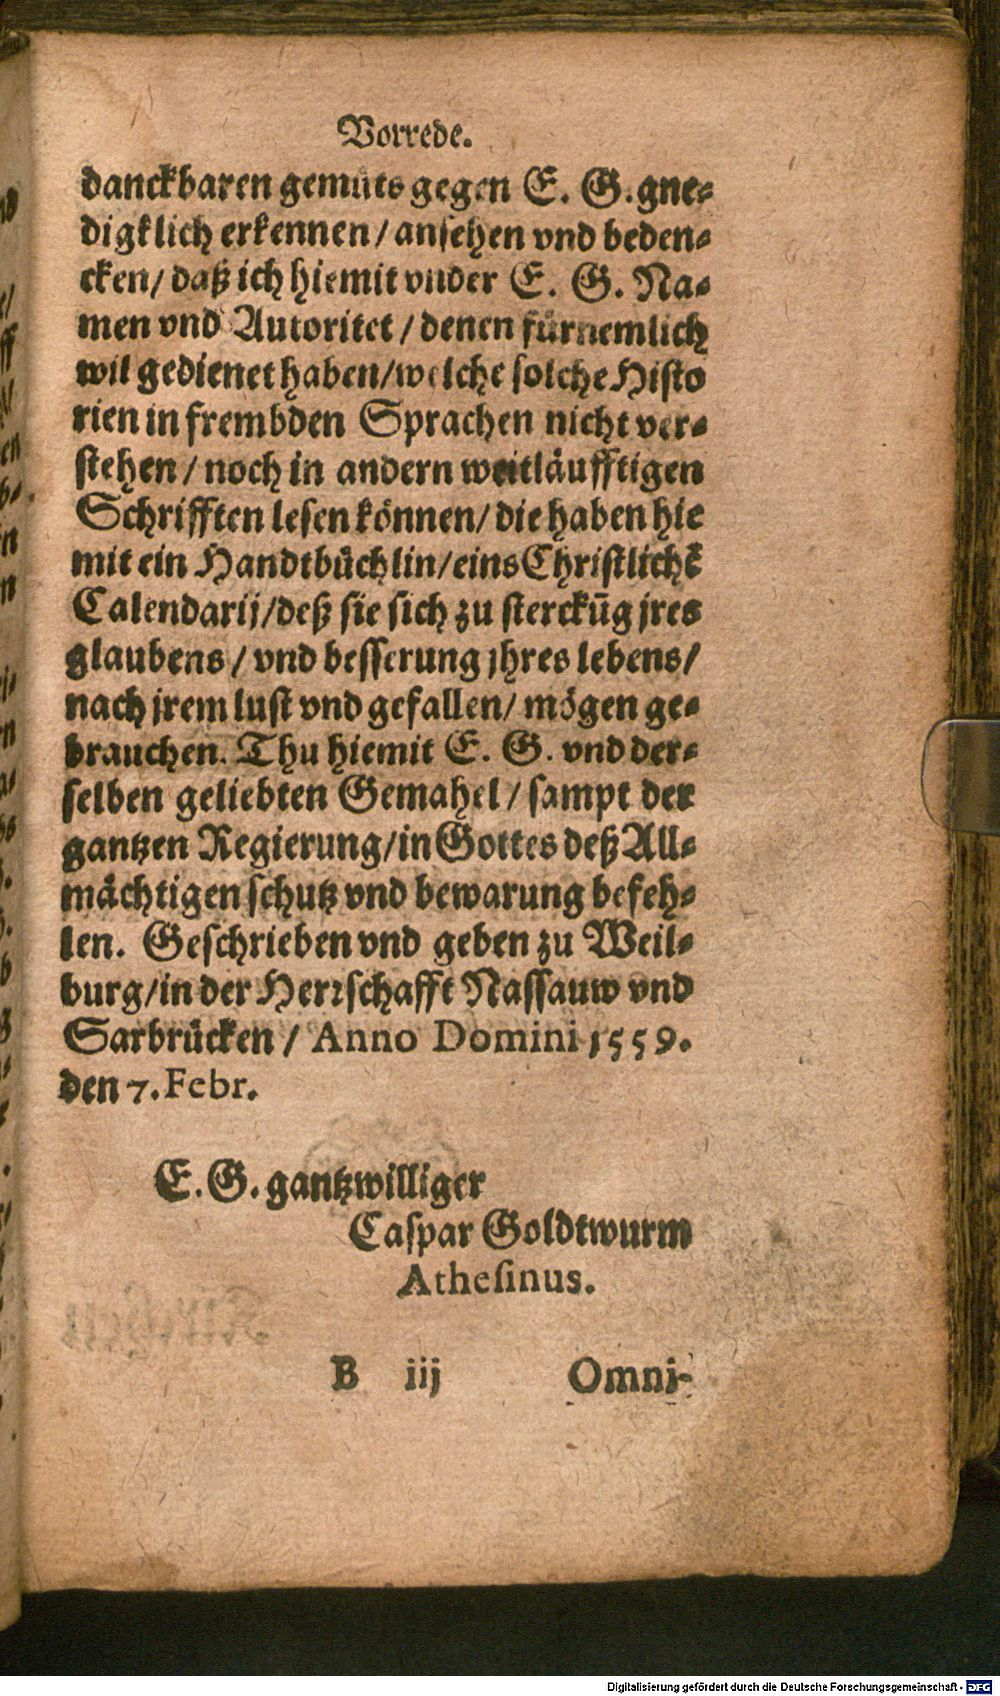 Vorrede.
danckbaren gemuͤts gegen E. G. gne⸗
digklich erkennen / ansehen vnd beden⸗
cken / daß ich hiemit vnder E. G. Na⸗
men vnd Autoritet / denen fürnemlich
wil gedienet haben / welche solche Histo
rien in frembden Sprachen nicht ver⸗
stehen / noch in andern weitläufftigen
Schrifften lesen können / die haben hie
mit ein Handtbuͤchlin / eins Christlichẽ
Calendarij / deß sie sich zu sterckũg jres
glaubens / vnd besserung jhres lebens /
nach jrem lust vnd gefallen / mögen ge⸗
brauchen. Thu hiemit E. G. vnd der⸗
selben geliebten Gemahel / sampt der
gantzen Regierung / in Gottes deß All⸗
mächtigen schutz vnd bewarung befeh⸗
len. Geschrieben vnd geben zu Weil⸗
burg / in der Herrschafft Nassauw vnd
Sarbruͤcken / Anno Domini 1559.
den 7. Febr.
E. G. gantzwilliger
Caspar Goldtwurm
Athesinus.
B iij Omni-
Digitalisierung gefördert durch die Deutsche Forschungsgemeinschaft - DFG